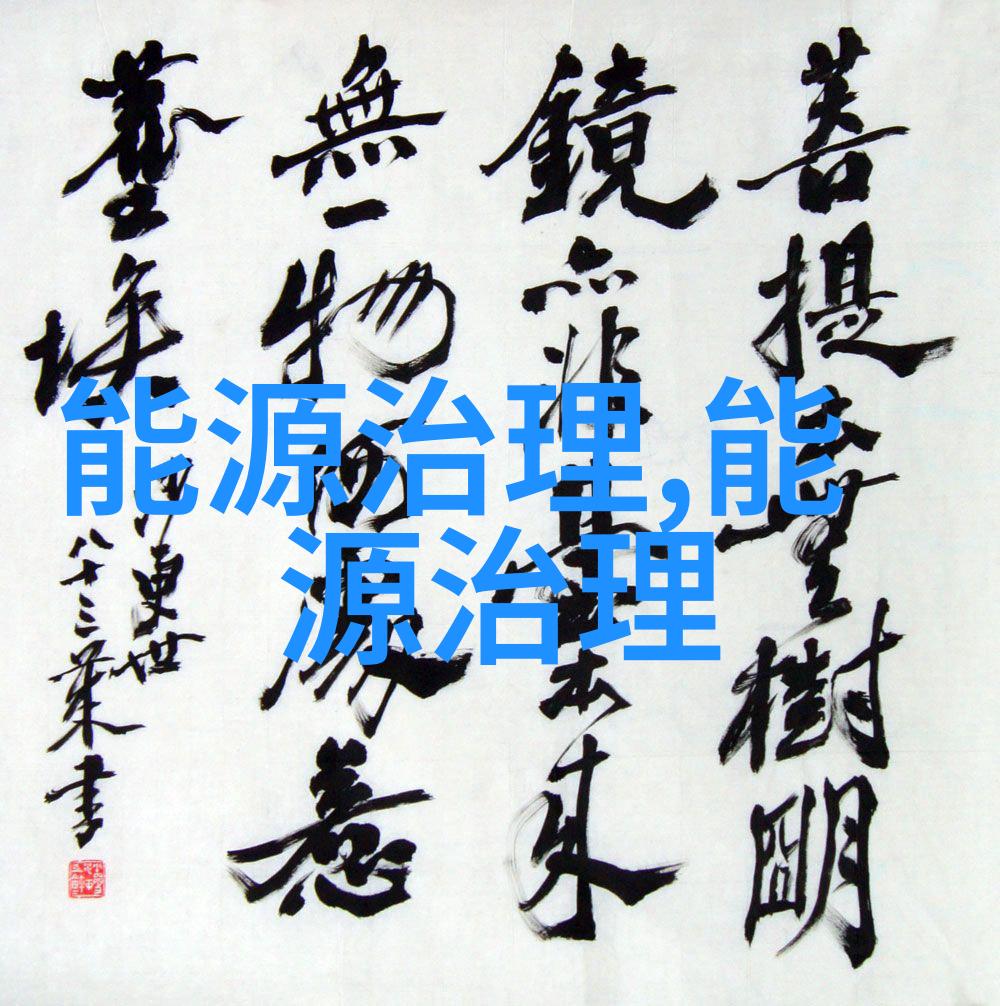 菩提本無樹明
鏡亦非臺本來
無一物何處惹
塵埃
八十三 書
能源治理,能
源治理